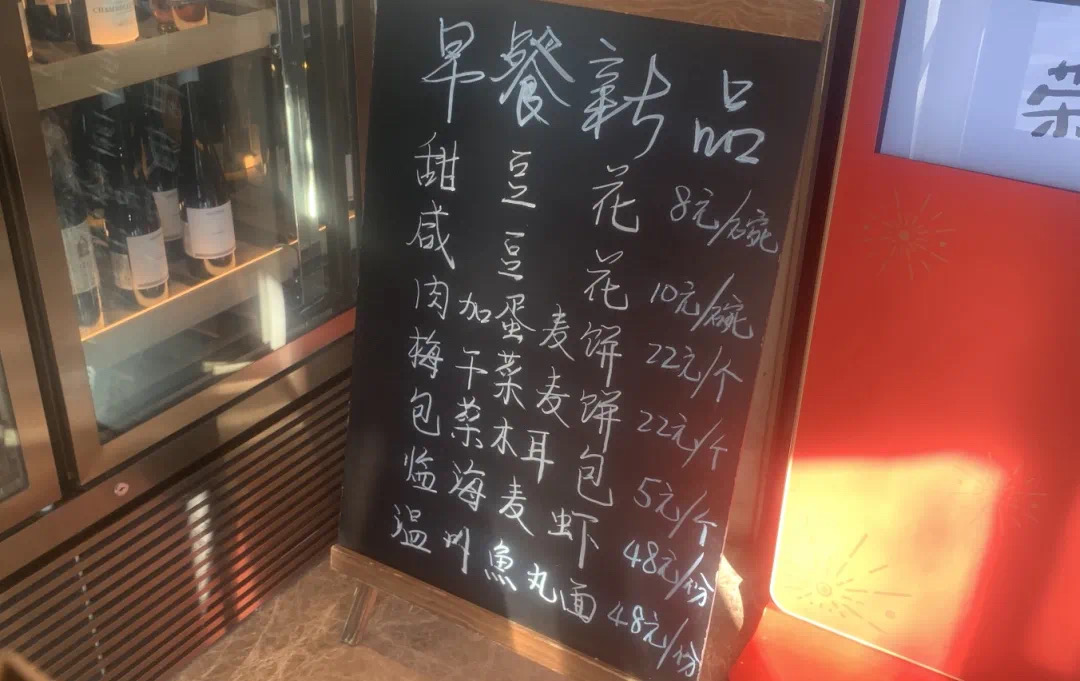 早餐新品
甜豆花 8元/碗
咸豆花 10元/碗
肉加蛋麦饼 22元/个
梅干菜麦饼 22元/个
包菜木耳包 5元/个
临海麦虾 48元/份
温州魚丸面 48元/份
荣